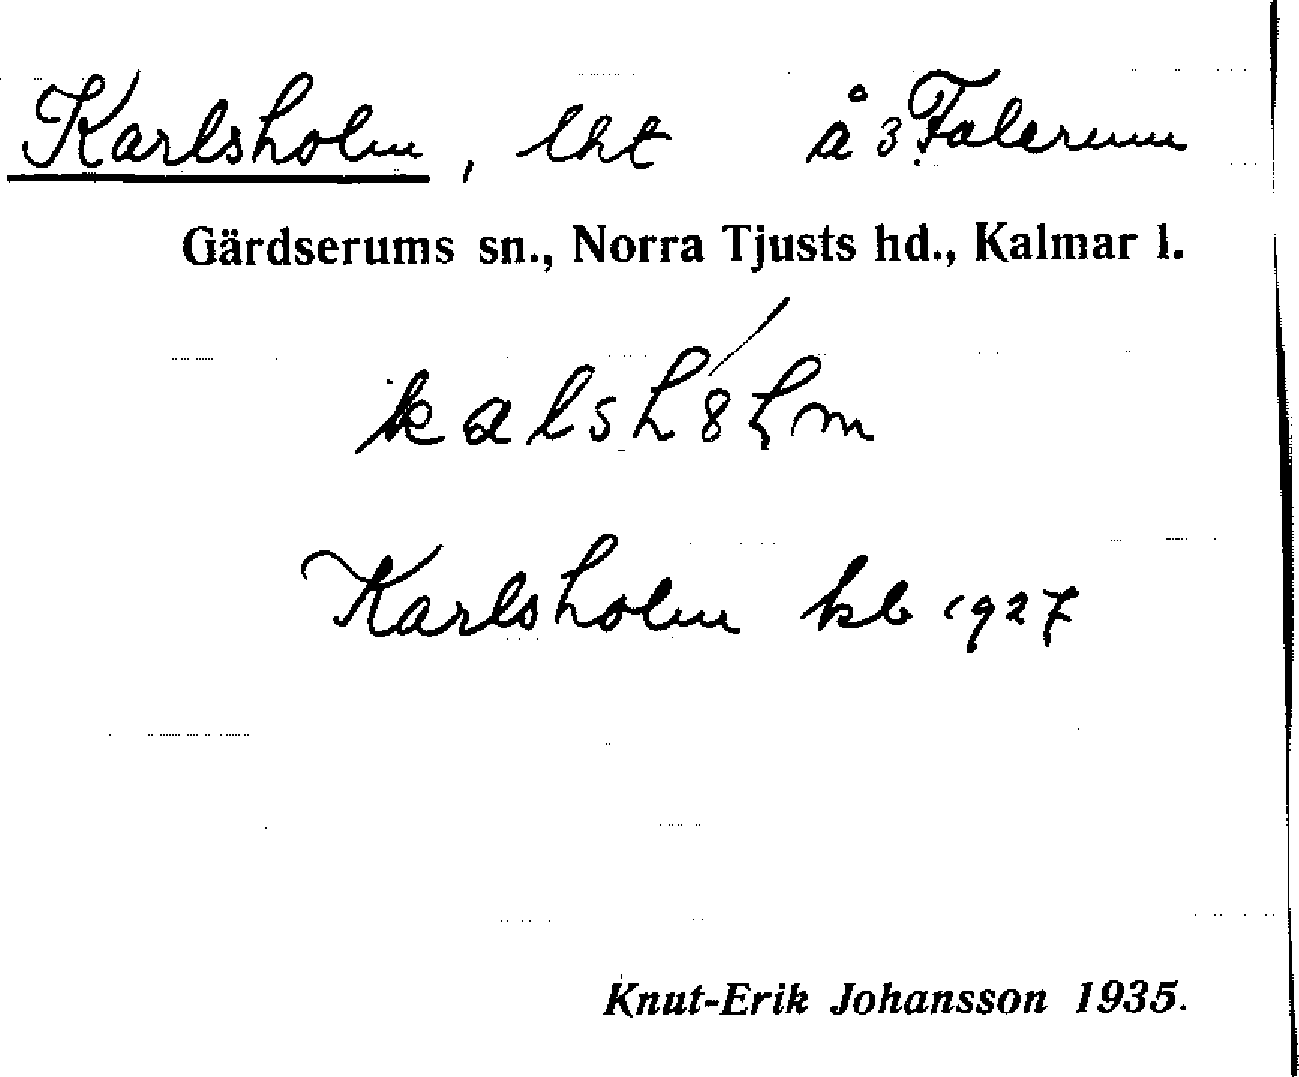 Karlsholm, lht å 3 Falerum
Gärdserums sn., Norra Tjusts hd., Kalmar l.
Karlsholm kb 1927
Knut-Erik Johansson 1935.